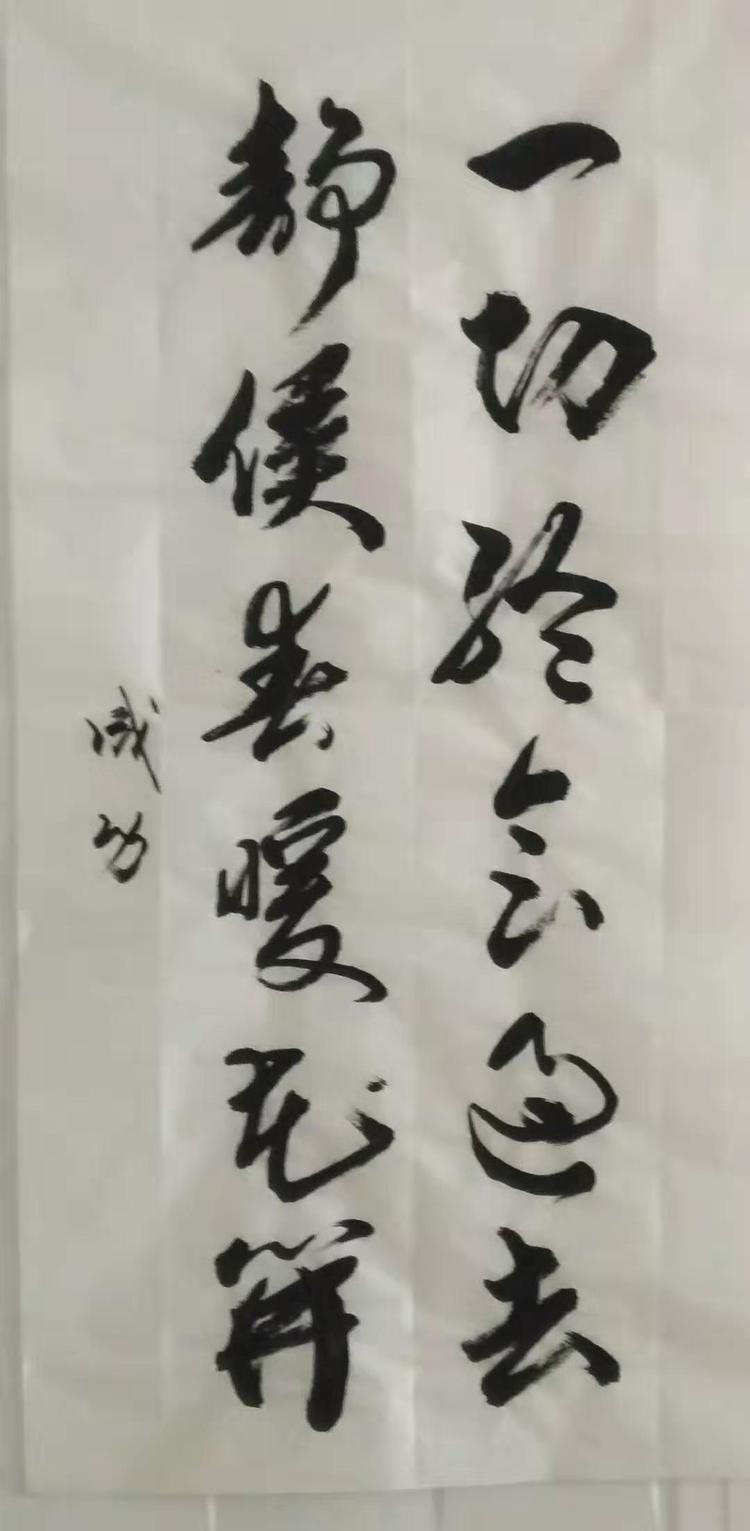 一切终会过去
静候春暖花開
成功